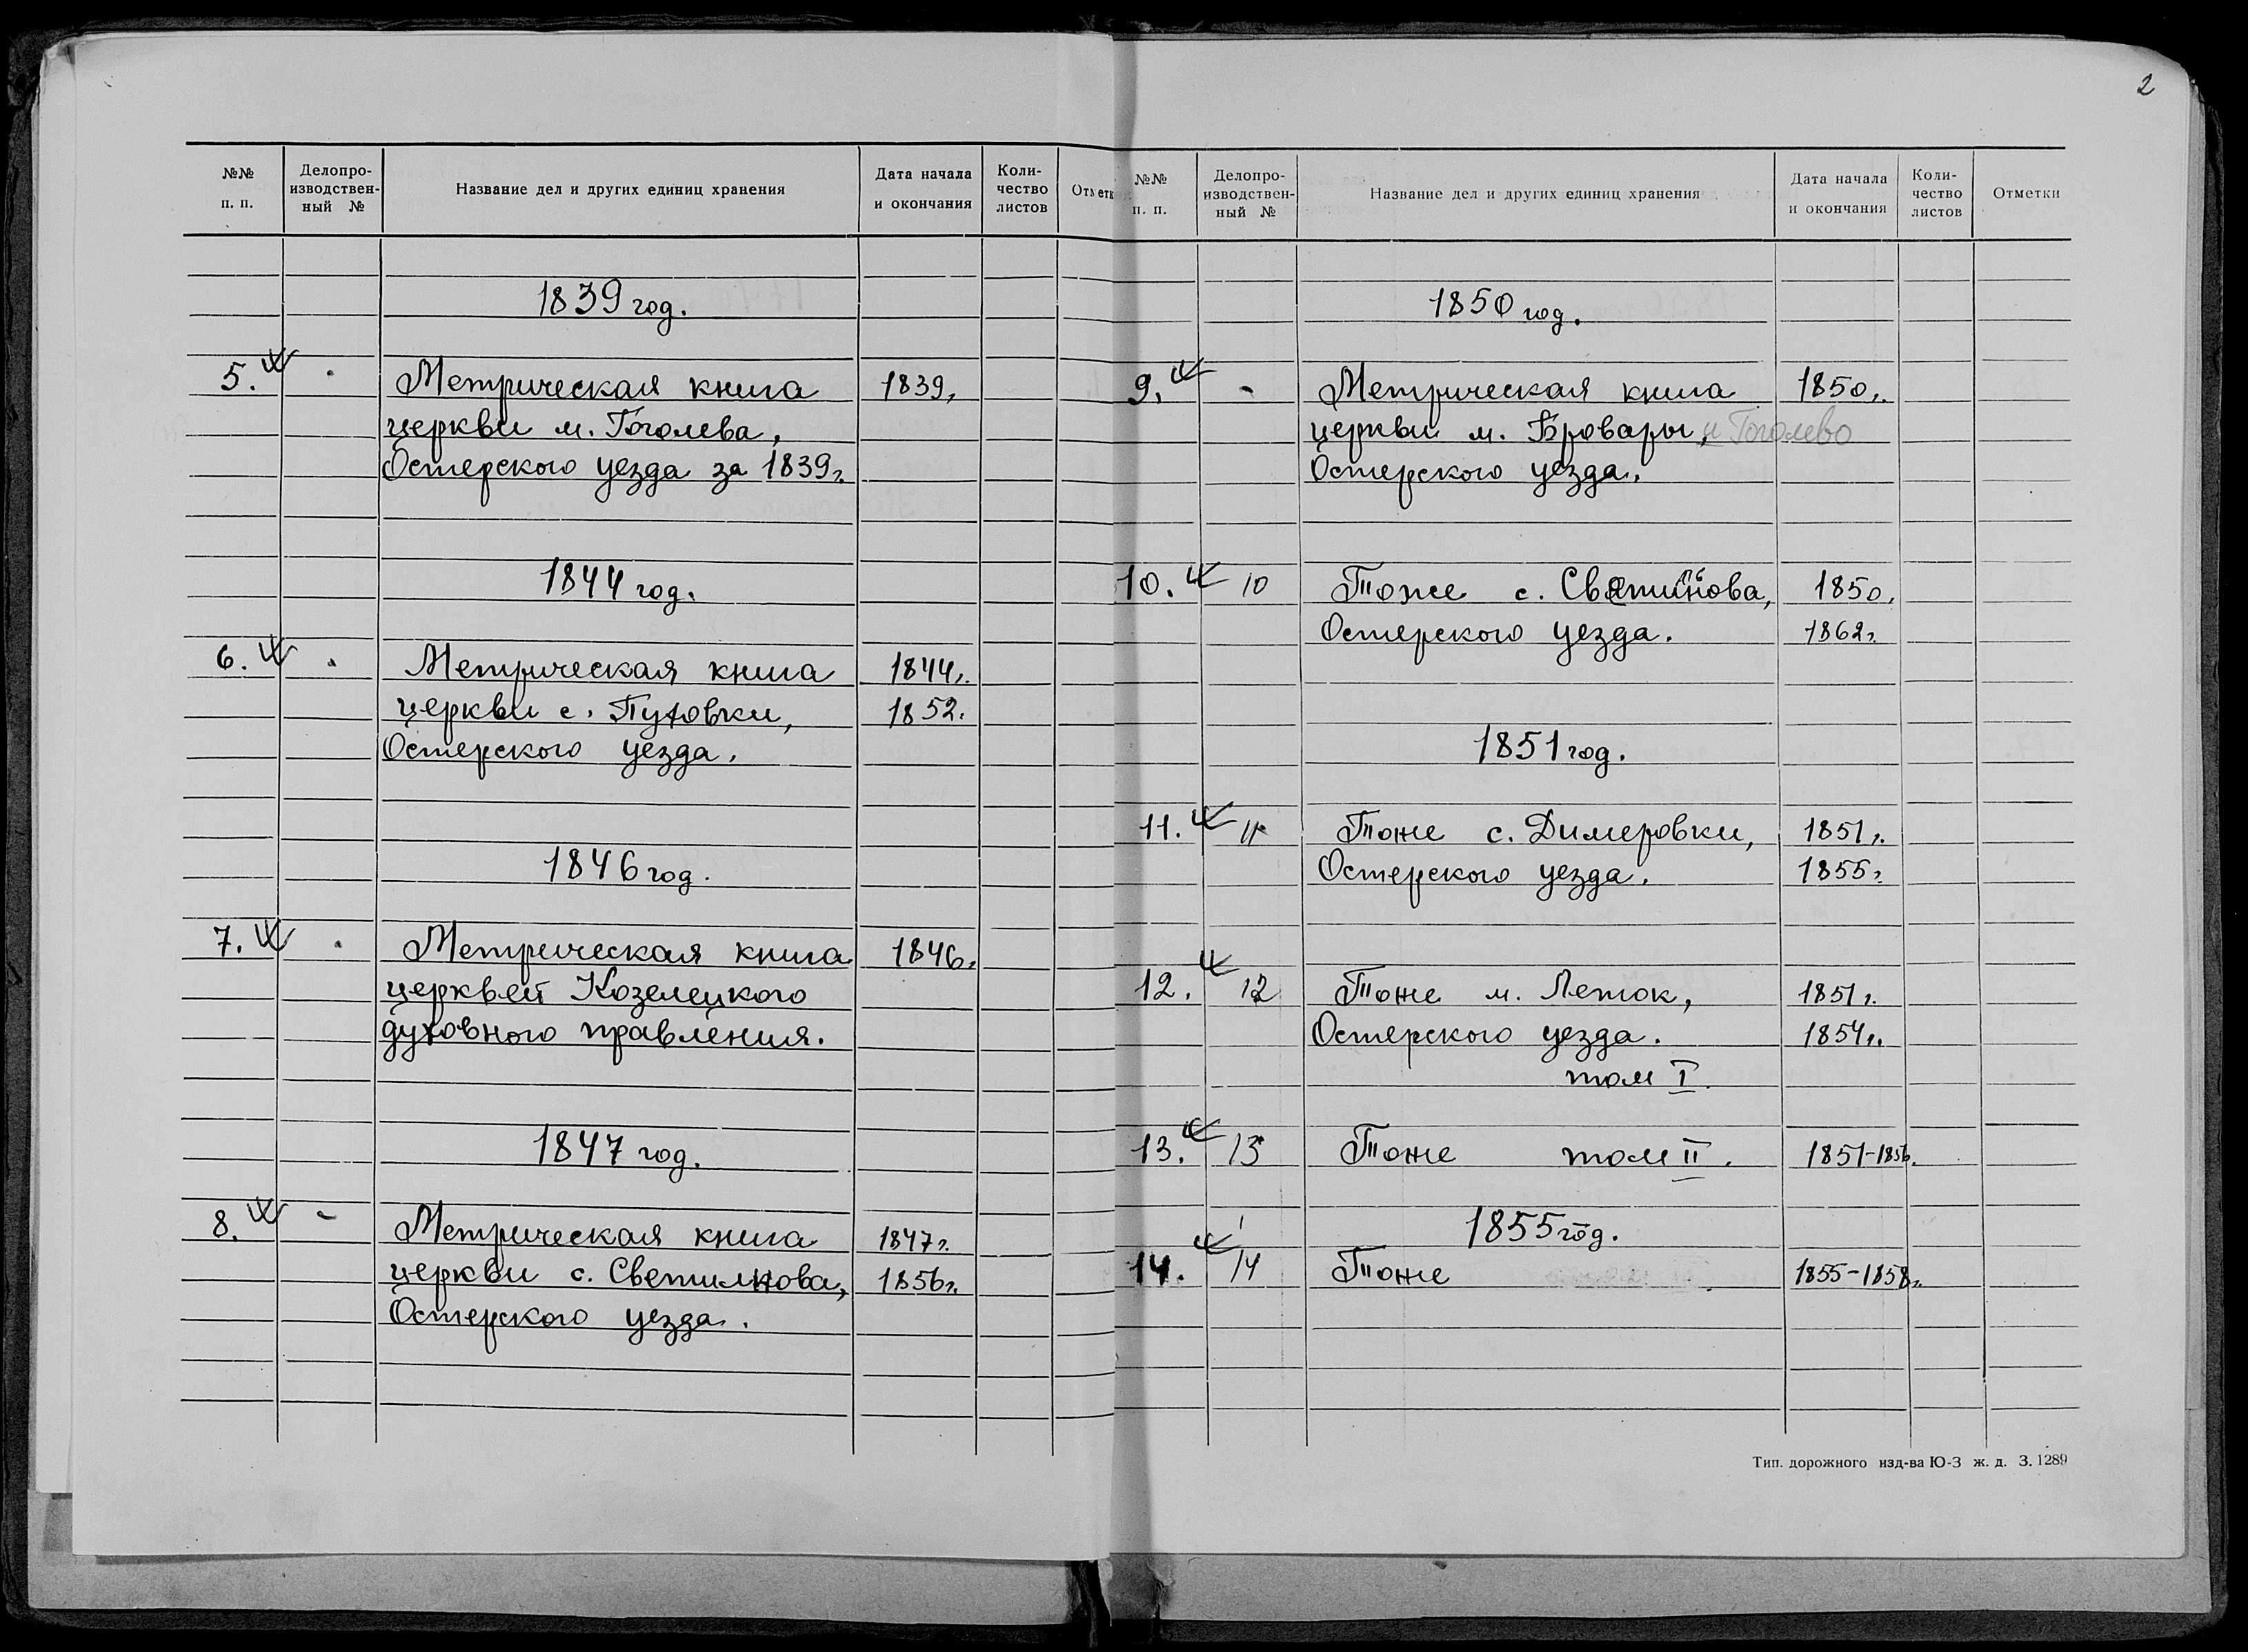 2
№№ п. п.
Делопро-
изводствен-
ный №
Название дел и других единиц хранения
Дата начала
и окончания
Коли-
чество
листов
Отметк
1839 год.
5. Метрическая книга 1839г.
церкви м. Гоголева,
Остерского уезда за 1839г.
1844 год.
6. Метрическая книга 1844г.
церкви с. Пуховки, 1852.
Остерского уезда.
1846 год.
7. Метрическая книга 1846г.
церквей Козелецкого
духовного правления.
1847 год.
8. Метрическая книга 1847г.
церкви с. Светилнова, 1856г.
Остерского уезда.
№№ п. п.
Делопро-
изводствен-
ный №
Название дел и других единиц хранения
Дата начала
и окончания
Коли-
чество
листов
Отметки
1850 год.
9. - Метрическая книга 1850г.
церкви м. Бровары и Гоголево
Остерского уезда.
10. 10 Тоже с. 1850.
Остерского уезда. 1862г.
1851 год.
11. 11 Тоже с. Димеровки, 1851г.
Остерского уезда. 1855г.
12. 12 Тоже м. Леток, 1851г.
Остерского уезда. 1854г.
том I.
13. 13 Тоже том II. 1851-1856.
1855 год.
14. 14 Тоже 1855-1858г.
Тип. дорожного изд-ва Ю-З ж. д. З. 1289